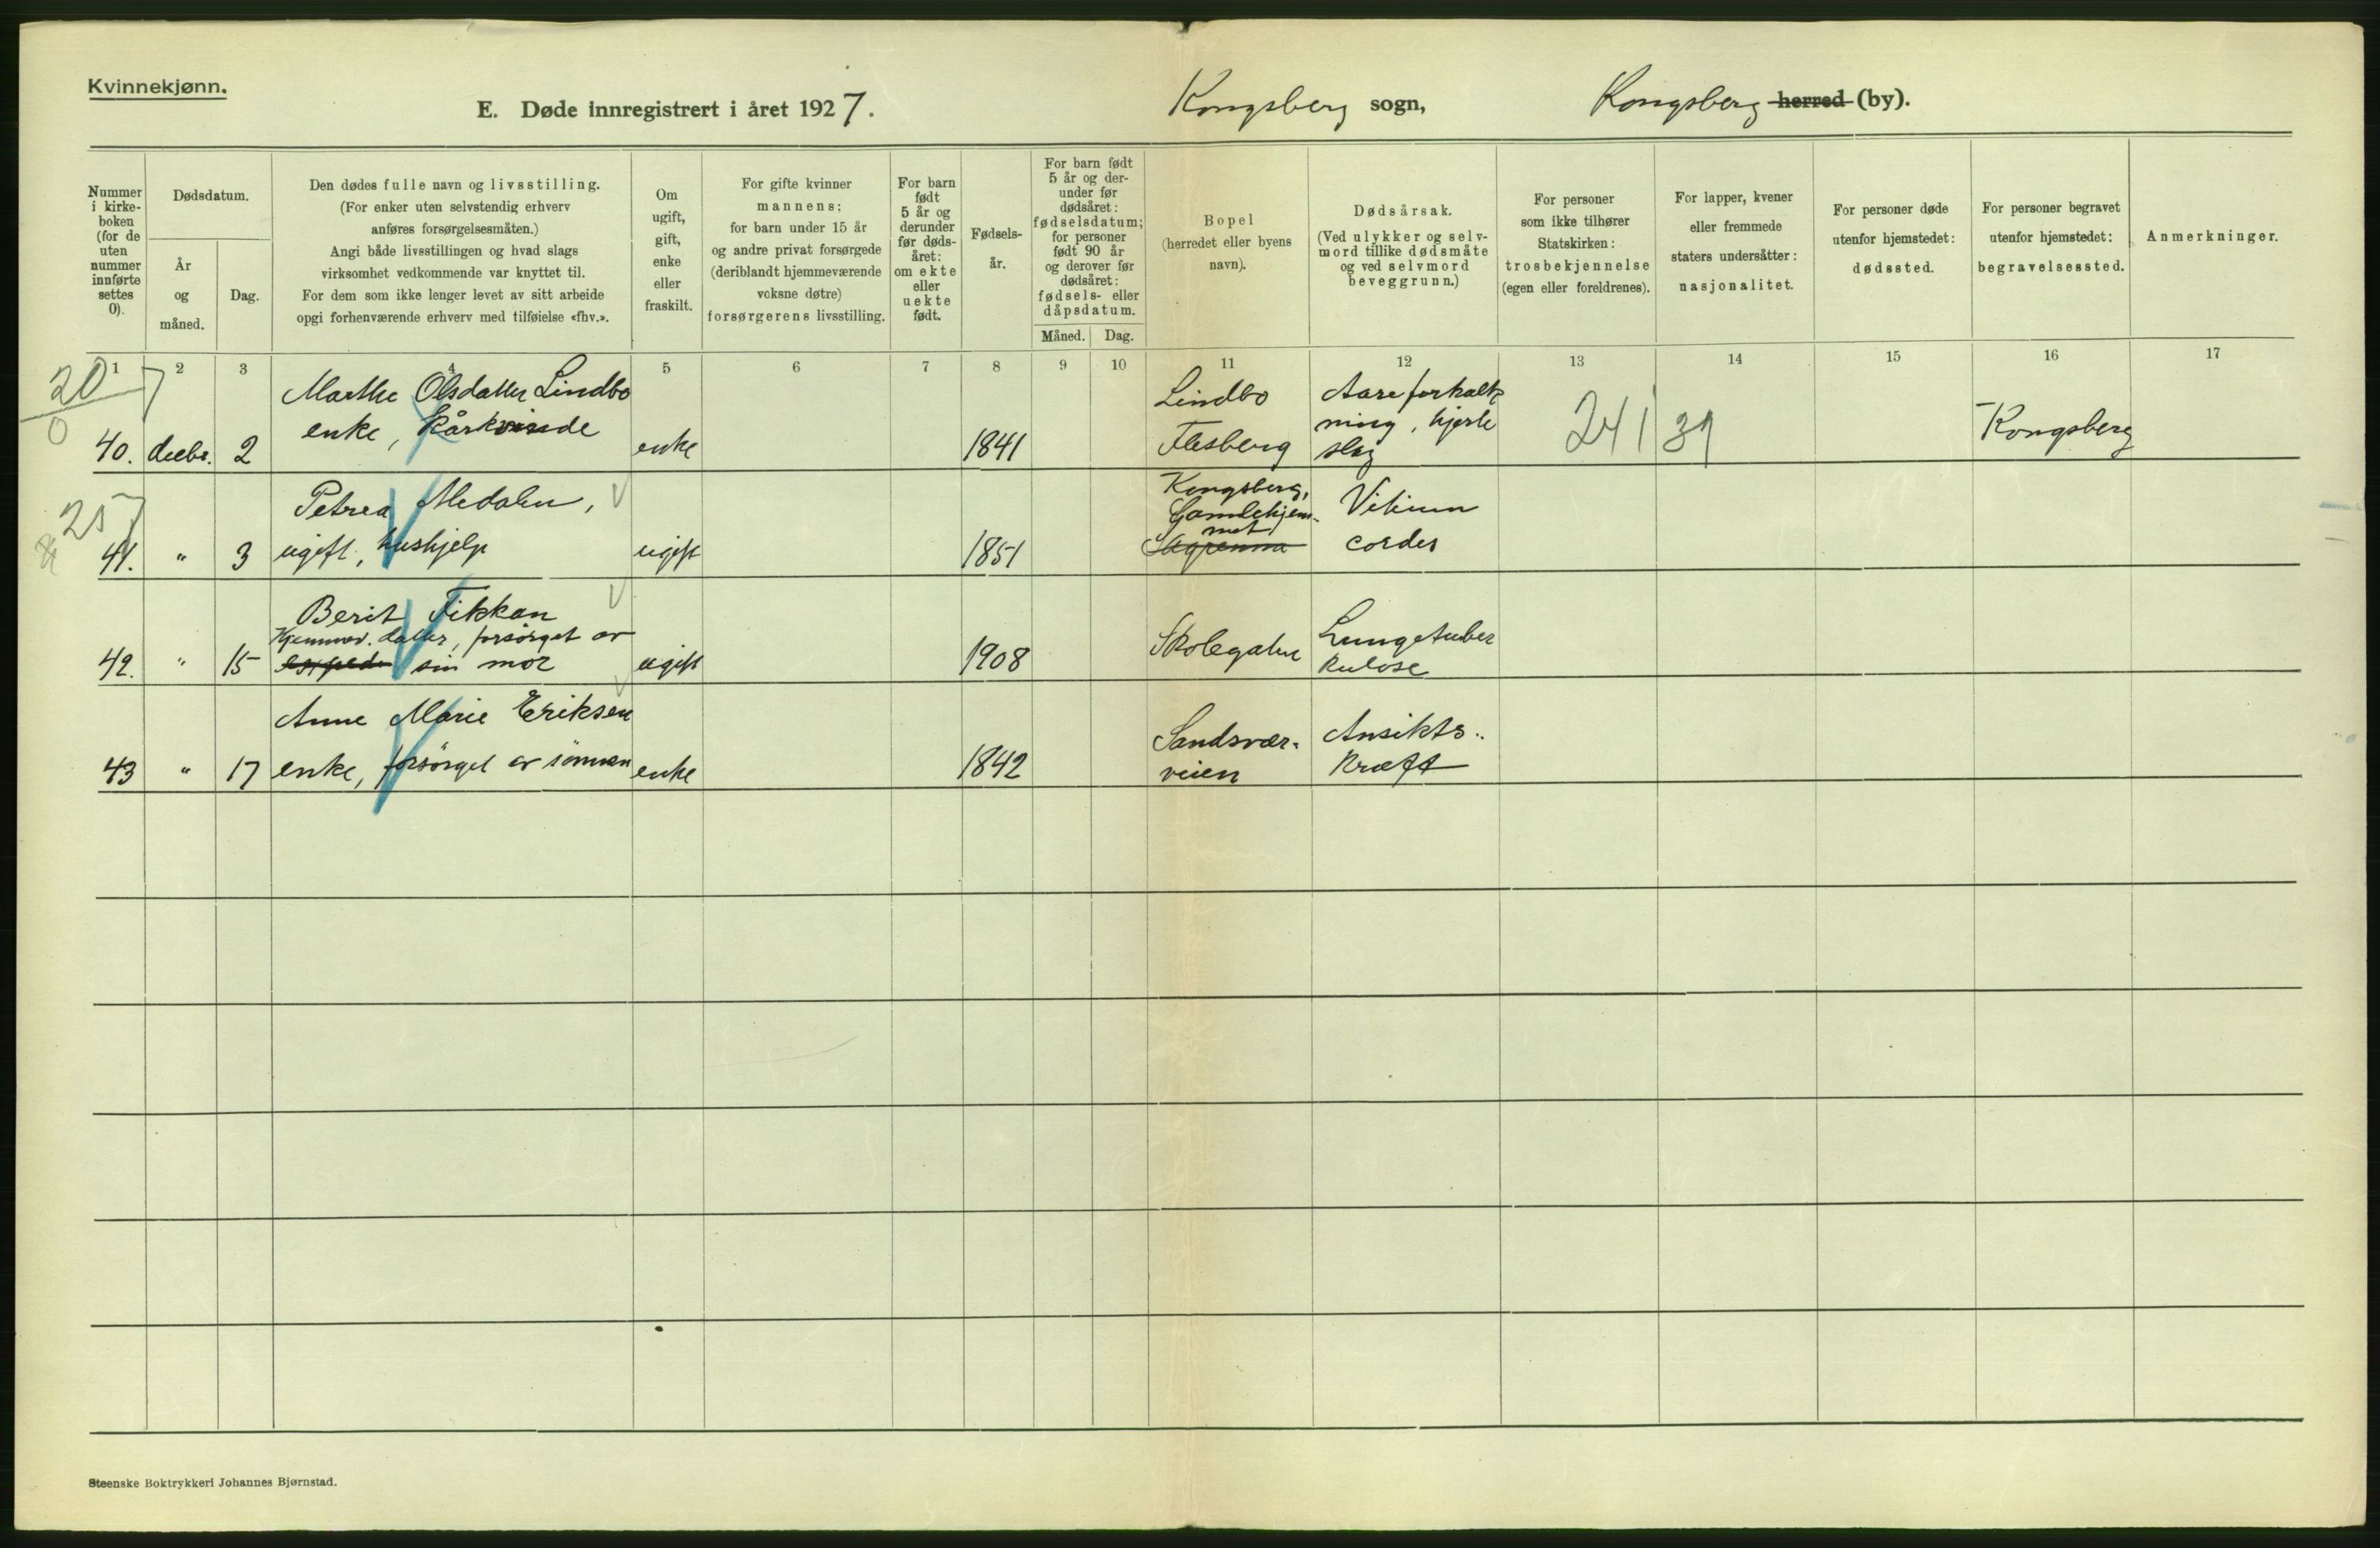 Kvinnekjønn.
E. Døde innregistrert i året 1927.
Kongsberg sogn,
Kongsberg herred (by).
Nummer
i kirke-
boken
(for de
uten
nummer
innførte
settes
0).
Dødsdatum.
År
og
måned.
Dag.
Den dødes fulle navn og livsstilling.
(For enker uten selvstendig erhverv
anføres forsørgelsesmåten.)
Angi både livsstillingen og hvad slags
virksomhet vedkommende var knyttet til.
For dem som ikke lenger levet av sitt arbeide
opgi forhenværende erhverv med tilføielse «fhv.».
Om
ugift,
gift,
enke
eller
fraskilt.
For gifte kvinner
mannens;
for barn under 15 år
og andre privat forsørgede
(deriblandt hjemmeværende
voksne døtre)
forsørgerens livsstilling.
For barn
født
5 år og
derunder
før døds-
året:
om ekte
eller
uekte
født.
Fødsels-
år.
For barn født
5 år og der-
under før
dødsåret:
fødselsdatum;
for personer
født 90 år
og derover før
dødsåret:
fødsels- eller
dåpsdatum.
Måned.
Dag.
Bopel
(herredet eller byens
navn).
Dødsårsak.
(Ved ulykker og selv-
mord tillike dødsmåte
og ved selvmord
beveggrunn.)
For personer
som ikke tilhører
Statskirken:
trosbekjennelse
(egen eller foreldrenes).
For lapper, kvener
eller fremmede
staters undersåtter:
nasjonalitet.
For personer døde
utenfor hjemstedet:
dødssted.
For personer begravet
utenfor hjemstedet:
begravelsessted.
Anmerkninger.
1 2 3 4 5 6 7 8 9 10 11 12 13 14 15 16 17
20
0
7
40. decbr. 2
Marthe Olsdatter Lindbo
enke, kårkvinde
enke
1841
Lindbo
Flesberg
Aareforkalk
ning, hjerte
slag
241 39
Kongsberg
25
7
41. " 3
Petrea Medalen,
ugift, hushjelp
ugift
1851
Kongsberg,
Gamlehjem-
met
Vitium
cordis
42. " 15
Berit Fikkan
Hjemmev. datter, forsørget av
sin mor
ugift
1908
Skolegaten
Lungetuber
kulose
43 " 17
Anne Marie Eriksen
enke, forsørget av sønnen
enke
1842
Sandsvær-
veien
Ansikts-
kræft
Steenske Boktrykkeri Johannes Bjørnstad.